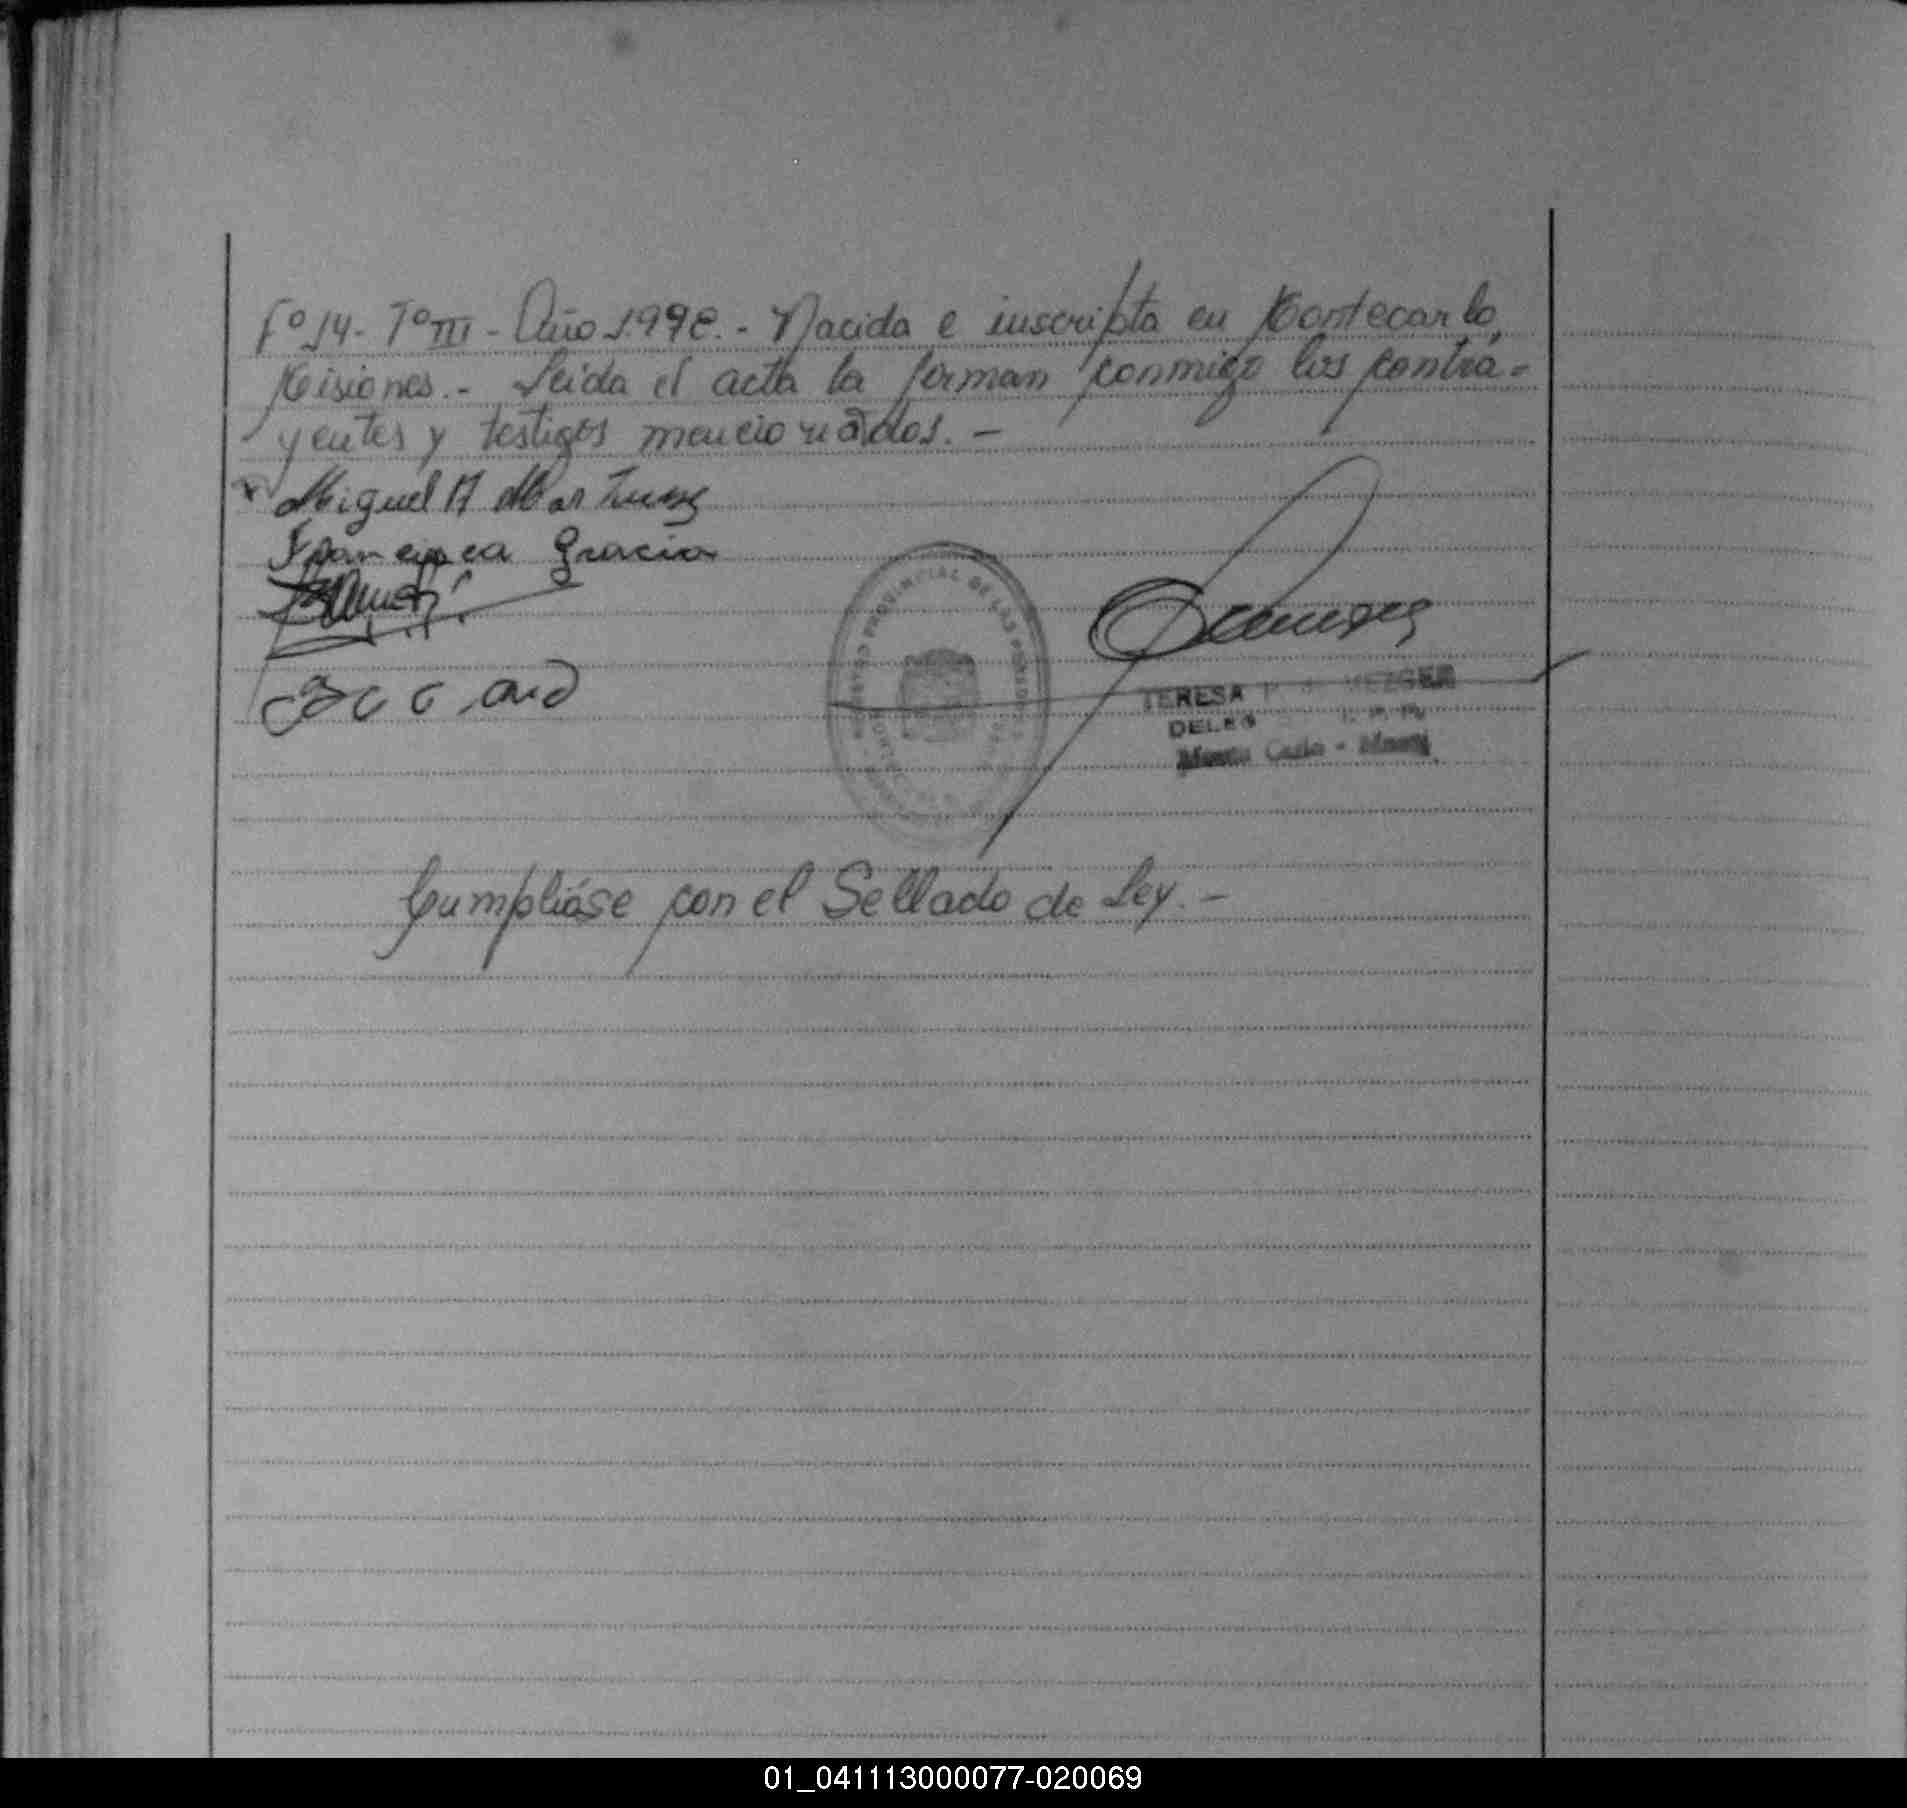 Fº 14 - Tº III - Año 1998. - Nacida e inscripta en Montecarlo,
Misiones. - Leida el acta la firman conmigo los contra-
yentes y testigos mencionados. -
Miguel A Martinez
Francisca Gracia
REGISTRO PROVINCIAL DE LAS PERSONAS
TERESA METZGER
DELEG
Monte Carlo - Mnes
Cumpliáse con el Sellado de Ley. -
01_041113000077-020069